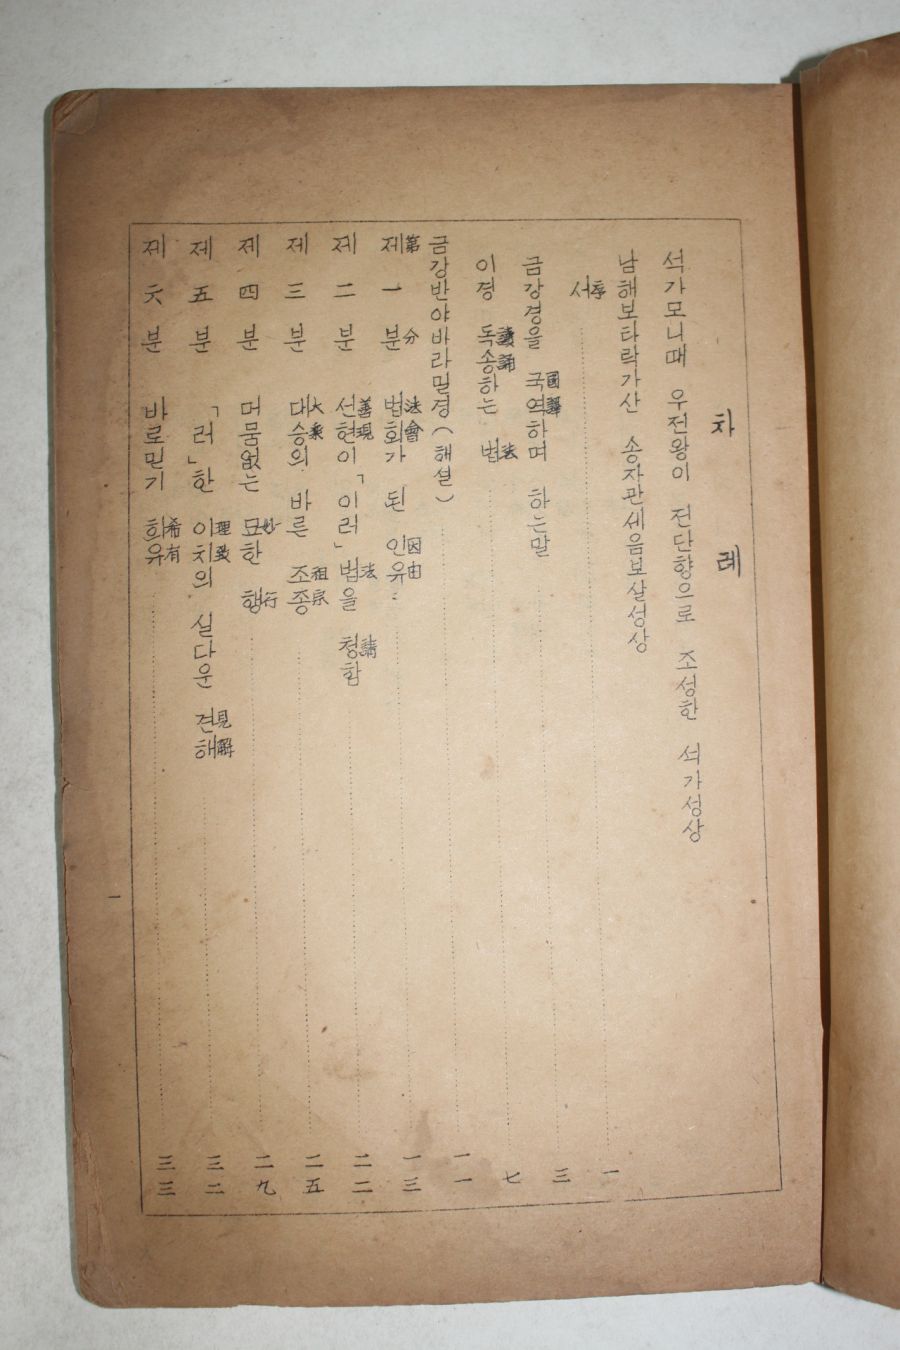 차례
석가모니때 우전왕이 전단향으로 조성한 석가성상
남해보타락가산 송자관세음보살성상
서序 一
금강경을 국역國譯하며 하는말 三
이경 독송讀誦하는 법法 七
금강반야바라밀경(해설) 一一
제第一분分 법회法會가 된 인유因由 一三
제二분 선현善現이「이러」법法을 청請함 二二
제三분 대승大乘의 바른 조종祖宗 二五
제四분 머뭄없는 묘妙한 행行 二九
제五분 「러」한 이치理致의 실다운 견해見解 三二
제六분 바로믿기 희유希有 三三
一